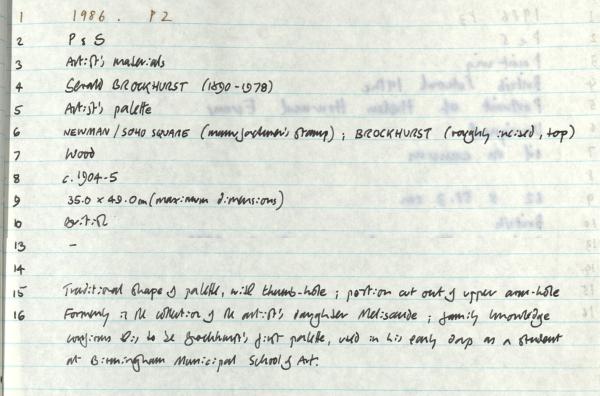 1 1986. P2
2 P & S
3 Artist's materials
4 Gerald BROCKHURST (1890-1978)
5 Artist's palette
6 NEWMAN/SOHO SQUARE (manufacturer's stamp); BROCKHURST (roughly incised, top)
7 Wood
8 c. 1904-5
9 35.0 x 49.0cm (maximum dimensions)
10 British
13 -
14
15 Traditional shape of palette, with thumb-hole; portion cut out of upper arm-hole
16 Formerly in the collection of the artist's daughter Melisande; family knowledge
confirms this to be Brockhurst's first palette, used in his early days as a student
at Birmingham Municipal School of Art.